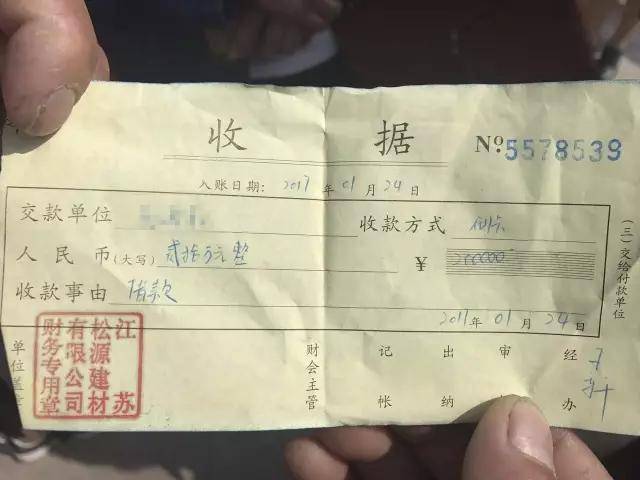 收据 № 5578539
入账日期: 2017 年 01 月 24 日
交款单位 收款方式
人民币(大写) 贰拾万元整 ¥ 200000
收款事由 借款
2017年 01 月 24 日
江苏松源建材有限公司财务专用章
单位盖章 财会主管 记帐 出纳 审 经办
(三)交给付款单位